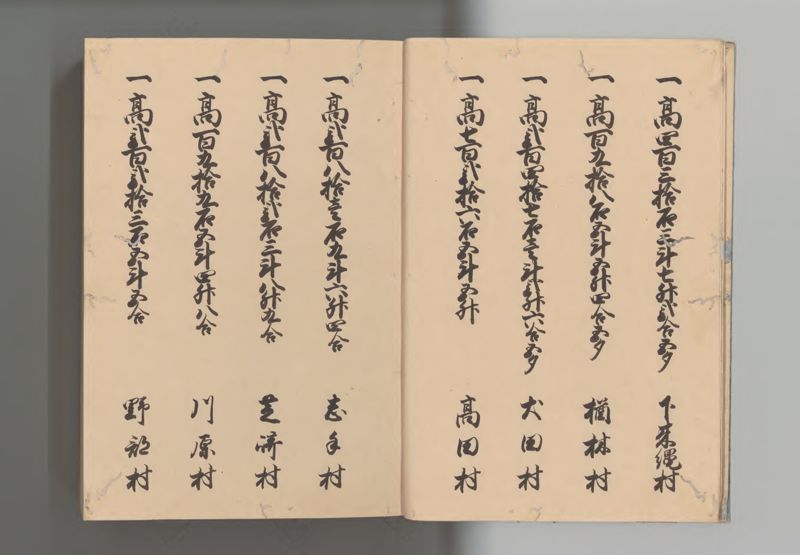 一高四百三拾石三斗七升弐合五夕 下来縄村
一高百九拾八石五斗五升四合五夕 楢林村
一高弐百四拾七石壱斗弐升六合五夕 犬田村
一高七百弐拾六石五斗五升 高田村
一高弐百八拾壱石九斗六升四合 志手村
一高弐百八拾弐石三斗八升九合 芝崎村
一高百九拾九石五斗四升八合 川原村
一高弐百弐拾三石五斗五合 野部村